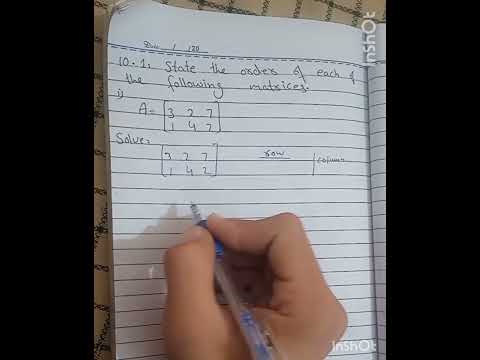 Date / 120
10.1. State the orders of each of
the following matrices.
i)
A= [3 2 7
1 4 2]
Solve,
[3 2 7
1 4 2]
row
column
InShOt
InShOt